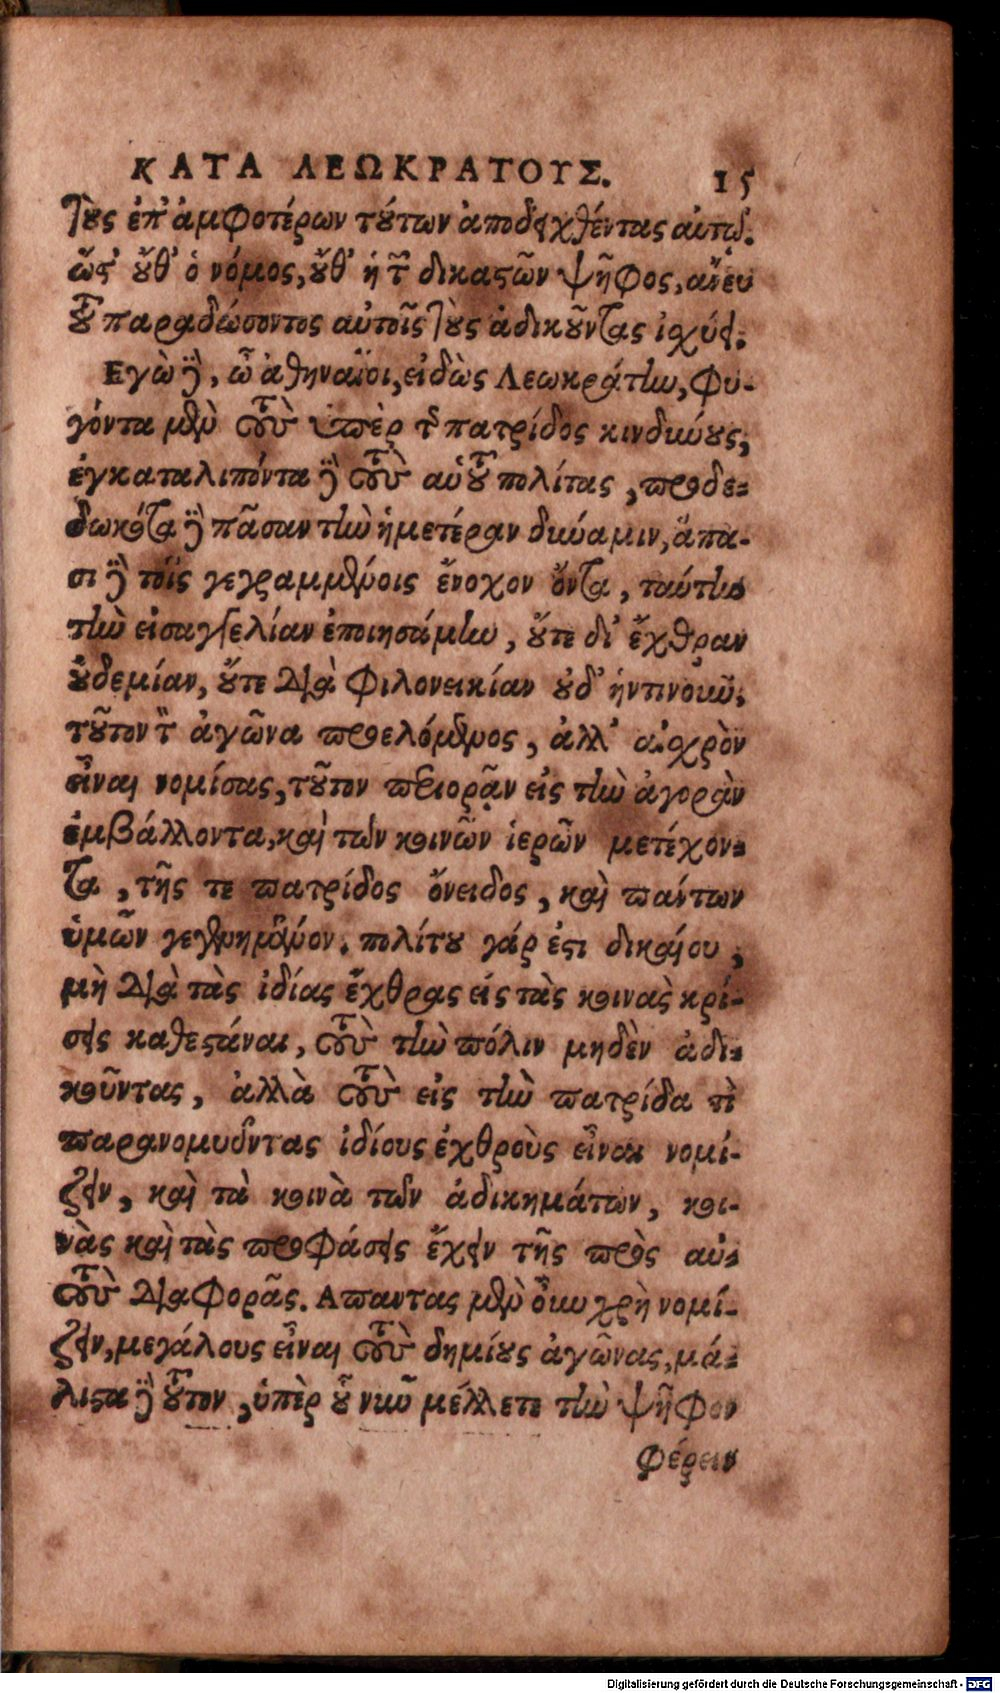 ΚΑΤΑ ΛΕΩΚΡΑΤΟΥΣ. 15
τοὺς ἐπ' ἀμφοτέρων τούτων ἀποδειχθέντας
ὥστ' οὔθ' ὁ νόμος, οὔθ' ἡ τῶν δικαστῶν ψῆφος, ἄνευ
τοῦ παραδώσοντος αὐτοῖς τοὺς ἀδικοῦντας ἰσχύει.
Εγὼ δὲ, ὦ ἀθηναῖοι, εἰδὼς Λεωκράτην, φυ-
γόντα μὲν τοὺς ὑπὲρ τῆς πατρίδος κινδύνους,
ἐγκαταλιπόντα δὲ τοὺς αὑτοῦ πολίτας, προδε-
δωκότα δὲ πᾶσαν τὴν ἡμετέραν δύναμιν, ἅπα-
σι δὲ τοῖς γεγραμμένοις ἔνοχον ὄντα, ταύτην
τὴν εἰσαγγελίαν ἐποιησάμην, οὔτε δι' ἔχθραν
οὐδεμίαν, οὔτε διὰ φιλονεικίαν οὐδ' ἡντινοῦν,
τοῦτον τὸν ἀγῶνα προελόμενος, ἀλλ' αἰσχρὸν
εἶναι νομίσας, τοῦτον περιορᾷν εἰς τὴν ἀγορὰν
ἐμβάλλοντα, καὶ τῶν κοινῶν ἱερῶν μετέχον-
τα, τῆς τε πατρίδος ὄνειδος, καὶ πάντων
ὑμῶν γεγενημένον. πολίτου γάρ ἐστι δικαίου,
μὴ διὰ τὰς ἰδίας ἔχθρας εἰς τὰς κοινὰς κρί-
σεις καθεστάναι, τοὺς τὴν πόλιν μηδὲν ἀδι-
κοῦντας, ἀλλὰ τοὺς εἰς τὴν πατρίδα τὶ
παρανομοῦντας ἰδίους ἐχθροὺς εἶναι νομί-
ζειν, καὶ τὰ κοινὰ τῶν ἀδικημάτων, κοι-
νὰς καὶ τὰς προφάσεις ἔχειν τῆς πρὸς αὐ-
τοὺς διαφορᾶς. Απαντας μὲν οὖν χρὴ νομί-
ζειν, μεγάλους εἶναι τοὺς δημίους ἀγῶνας, μά-
λιστα δὲ τοῦτον, ὑπὲρ οὗ νῦν μέλλετε τὴν ψῆφον
φέρειν
Digitalisierung gefördert durch die Deutsche Forschungsgemeinschaft - DFG